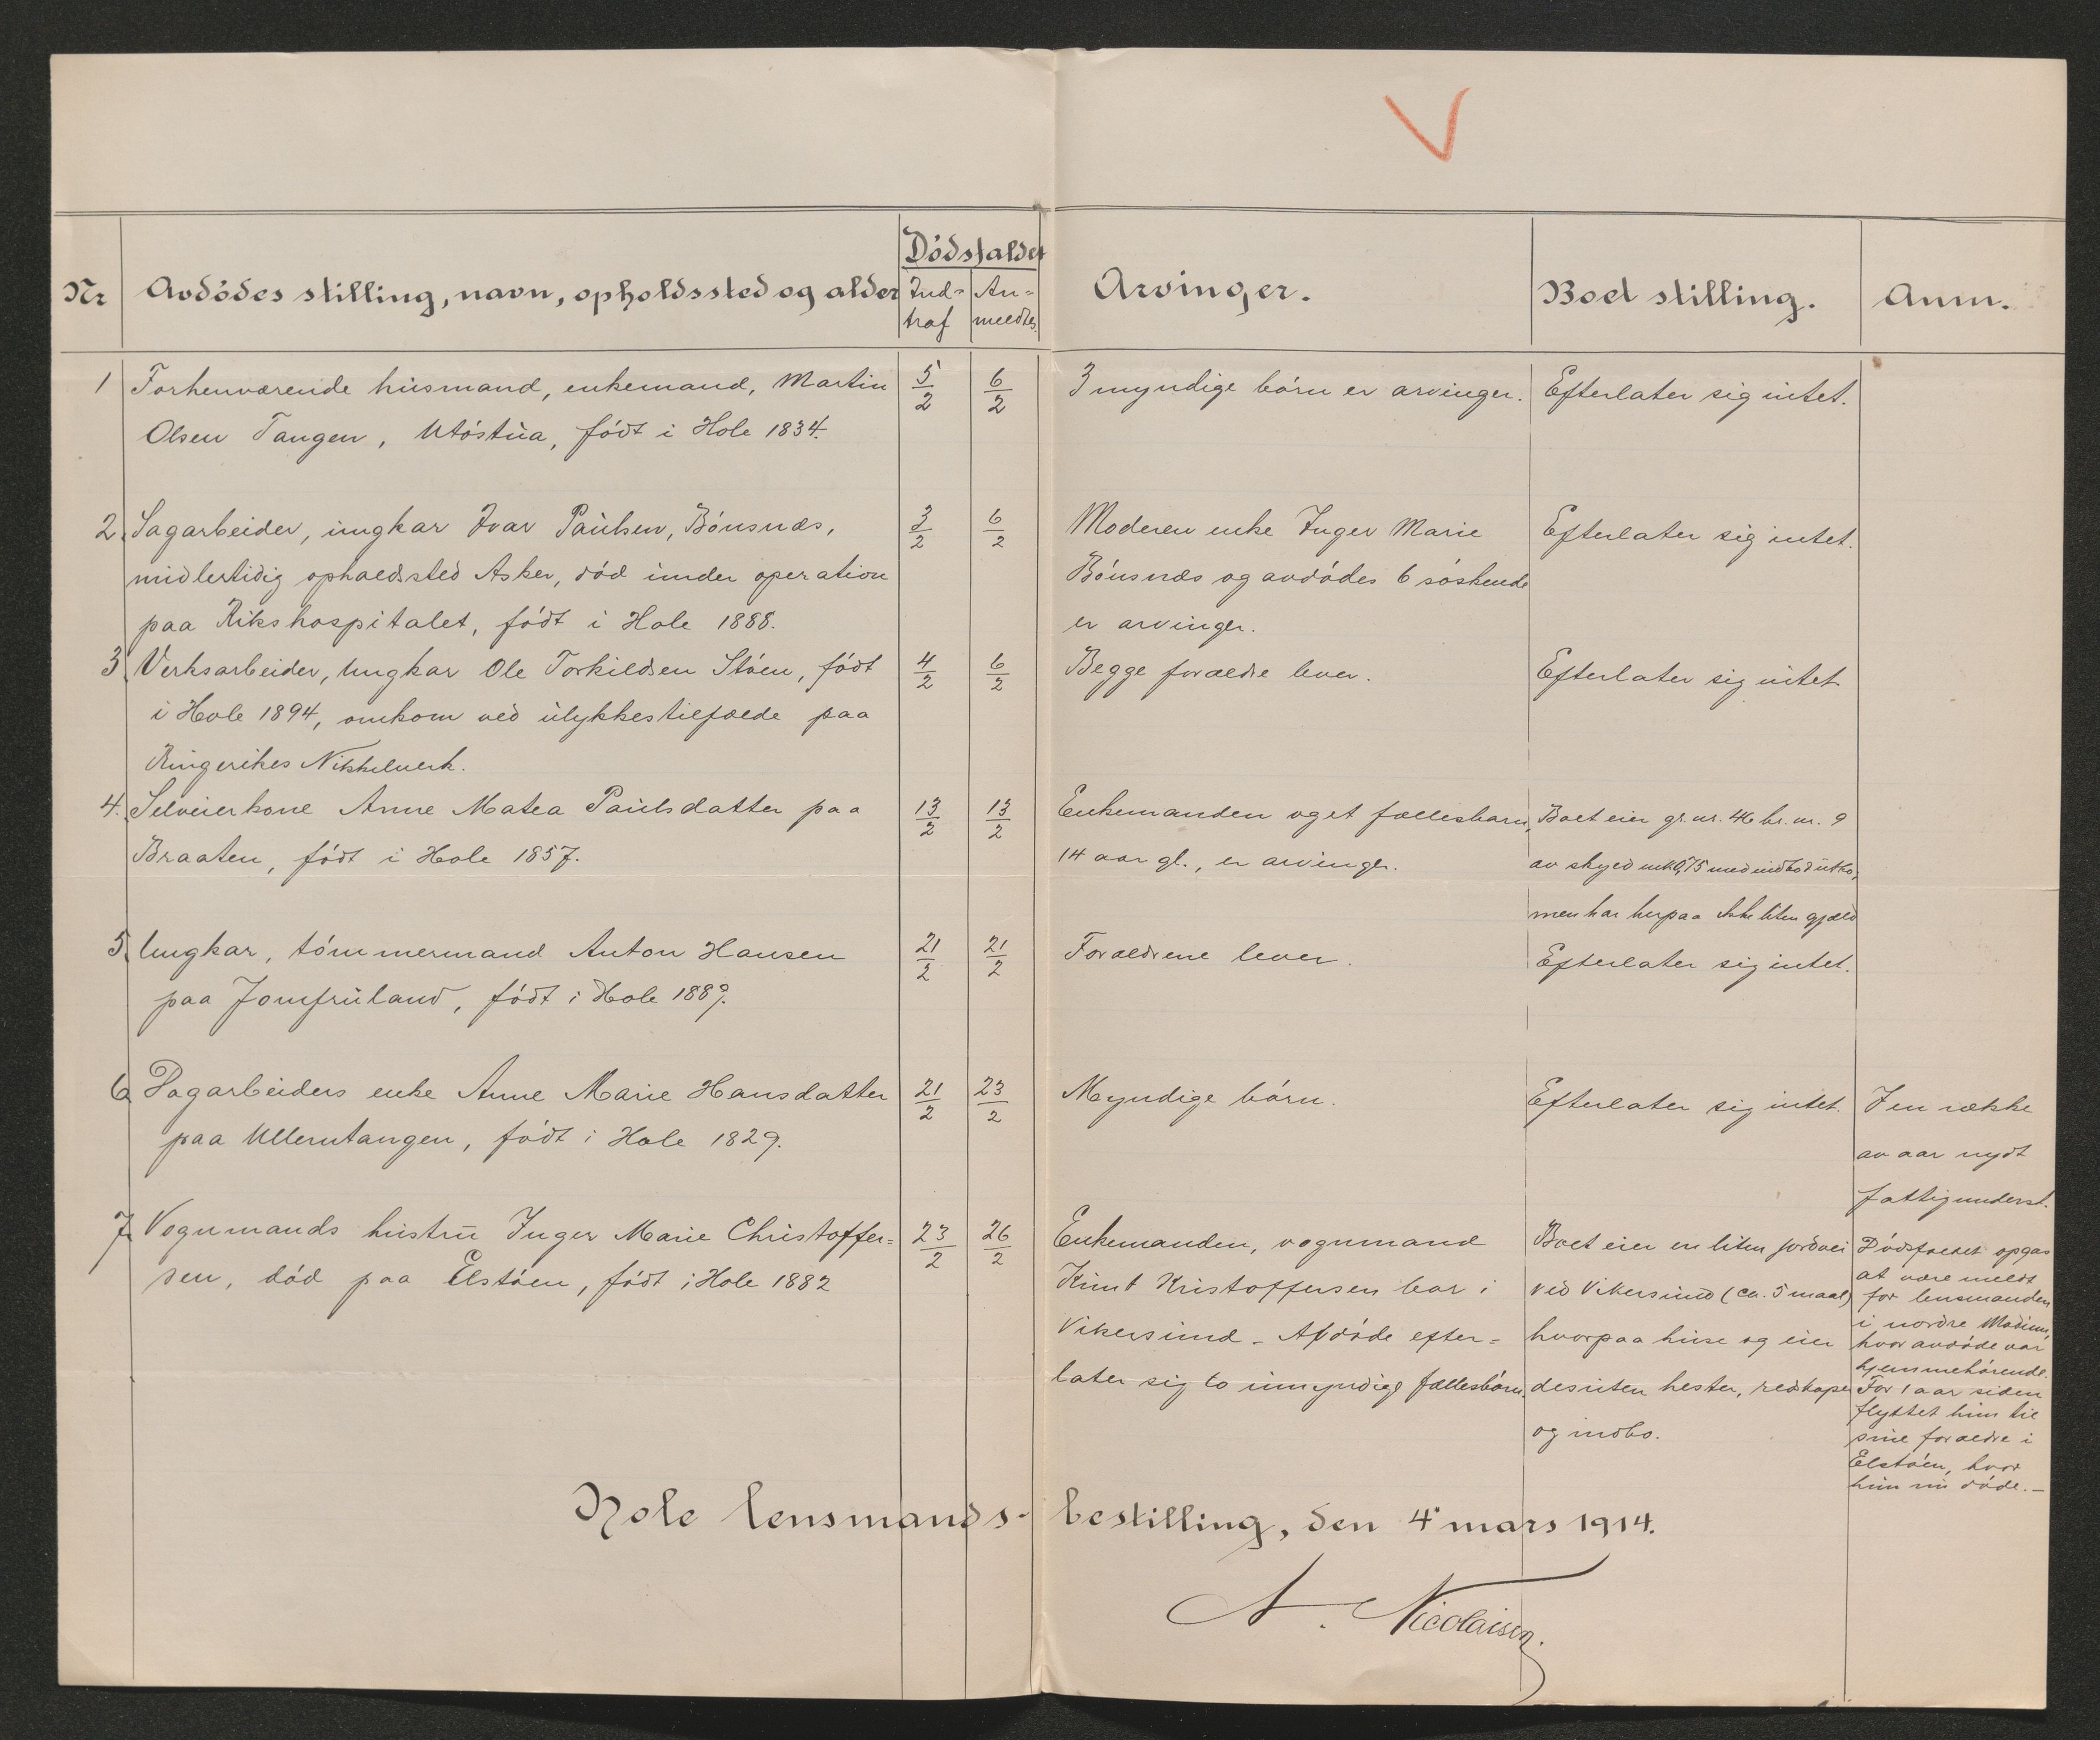 V
Dödsfaldet
Nr Avdödes stilling, navn, opholdssted og alder Ind- An- Arvinger. Boet stilling. Anm.
traf meldtes.
1 Forhenværende husmand, enkemand, Martin 5/2 6/2 3 myndige børn er arvinger. Efterlater sig intet.
Olsen Tangen, Utöstua, født i Hole 1834.
2. Sagarbeider, ungkar Ivar Paulsen, Bönsnæs, 3/2 6/2 Moderen enke Inger Marie Efterlater sig intet.
midlertidig opholdssted Asker, död under operation Bönsnæs og avdödes 6 søskende
paa Rikshospitalet, født i Hole 1888. er arvinger.
3 Verksarbeider, ungkar Ole Torkildsen Stöen, født 4/2 6/2 Begge forældre lever. Efterlater sig intet
i Hole 1894, omkom ved ulykkestilfælde paa
Ringerikes Nikkelverk.
4. Selveierkone Anne Matea Paulsdatter paa 13/2 13/2 Enkemanden og et fællesbarn, Boet eier gr. nr. 46 br. nr. 9
Braaten, født i Hole 1857. 14 aar gl., er arvinger. av skyld mk 0,75 med indbo & utbo,
men har herpaa ikke liten gjæld
5. Ungkar, tömmermand Anton Hansen 21/2 21/2 Forældrene lever. Efterlater sig intet.
paa Jomfruland, født i Hole 1889.
6 Sagarbeiders enke Anne Marie Hansdatter 21/2 23/2 Myndige børn. Efterlater sig intet. I en række
paa Ullerntangen, født i Hole 1829. av aar nydt
fattigunderst.
7. Vognmands hustru Inger Marie Christoffer= 23/2 26/2 Enkemanden, vognmand Boet eier en liten jordvei Dødsfaldet opgas
sen, död paa Elstöen, født i Hole 1882 Knut Kristoffersen bor i ved Vikersund (ca. 5 maal) at være meldt
for lensmanden
Vikersund - Afdöde efter= hvorpaa huse og eier i nordre Modum,
hvor avdöde var
hjemmehörende.
later sig to umyndige fællesbørn. desuten hester, redskaper For 1 aar siden
flyttet hun til
og indbo. sine forældre i
Elstöen, hvor
hun nu döde. -
Hole lensmands- bestilling, den 4' mars 1914.
A. Nicolaisen.